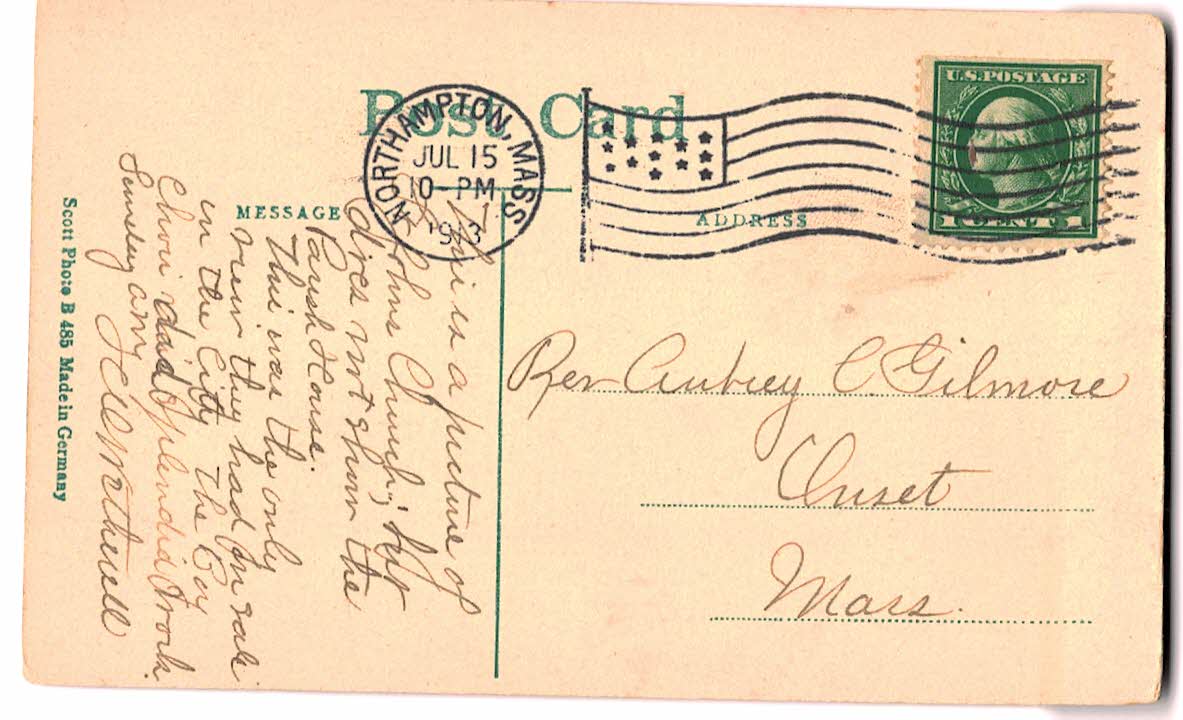 Post Card
NORTHAMPTON, MASS
JUL 15
10-PM
1913
U.S. POSTAGE
1 CENT 1
MESSAGE
ADDRESS
This is a picture of
St Johns Church; but
does not show the
Parish House.
This was the only
view they had on sale
in the City. The Boy
Choir did splendid work
Sunday am
Rev Aubrey C Gilmore
Onset
Mass.
Scott Photo B 485 Made in Germany